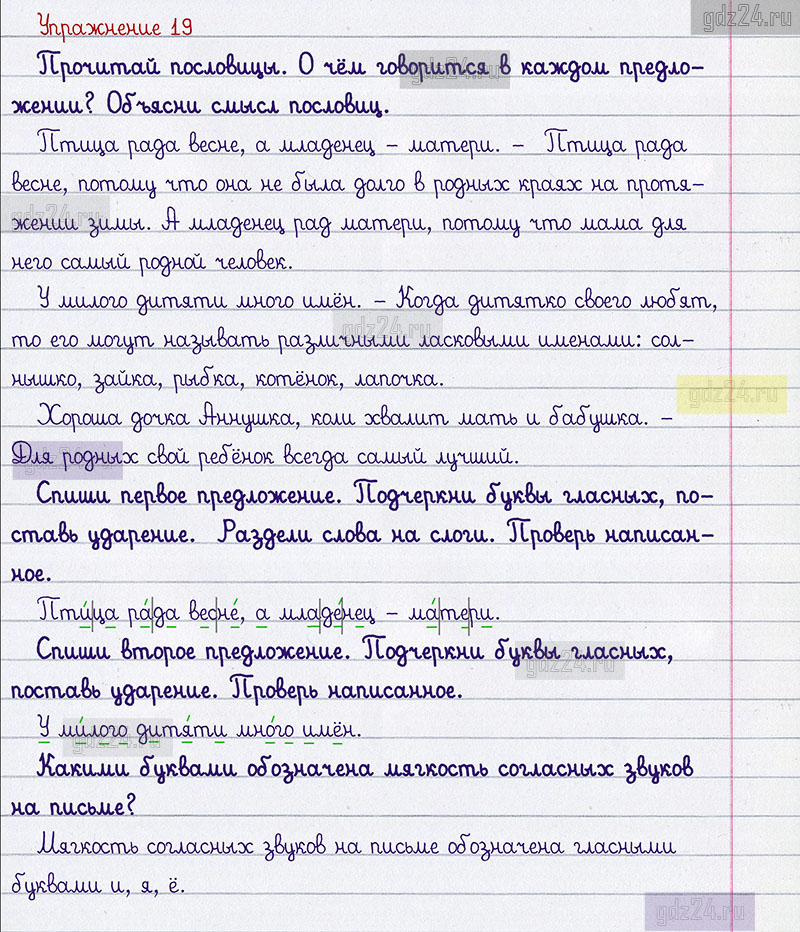 gdz24.ru
Упражнение 19
Прочитай пословицы. О чём говорится в каждом предло-
жении? Объясни смысл пословиц.
Птица рада весне, а младенец – матери. – Птица рада
весне, потому что она не была долго в родных краях на протя-
gdz24.ru
жении зимы. А младенец рад матери, потому что мама для
него самый родной человек.
У милого дитяти много имён. – Когда дитятко своего любят,
gdz24.ru
то его могут называть различными ласковыми именами: сол-
нышко, зайка, рыбка, котёнок, лапочка.
gdz24.ru
Хороша дочка Аннушка, коли хвалит мать и бабушка. –
Для родных свой ребёнок всегда самый лучший.
Спиши первое предложение. Подчеркни буквы гласных, по-
ставь ударение. Раздели слова на слоги. Проверь написан-
ное.
Пти́|ца ра́|да вес|не́, а мла|де́|нец – ма́|те|ри.
Спиши второе предложение. Подчеркни буквы гласных,
gdz24.ru
поставь ударение. Проверь написанное.
У ми́лого дитя́ти мно́го имён.
gdz24.ru
Какими буквами обозначена мягкость согласных звуков
на письме?
Мягкость согласных звуков на письме обозначена гласными
буквами и, я, ё.
gdz24.ru